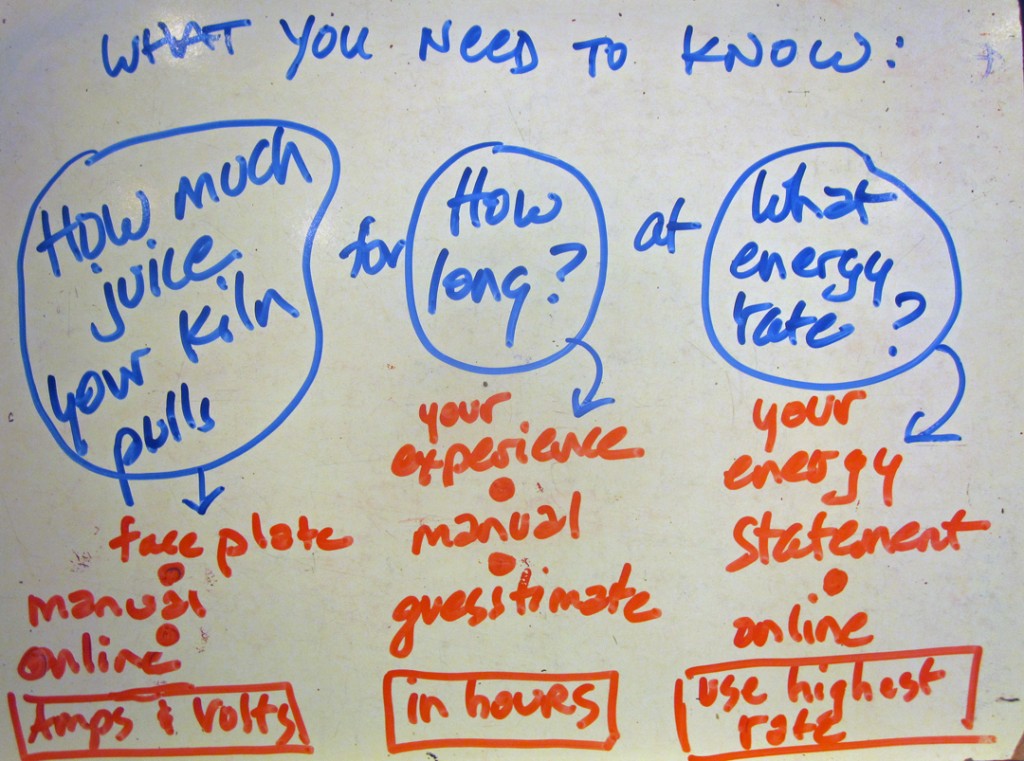 WHAT YOU NEED TO KNOW:
How much
juice
your kiln
pulls
for
How
long?
at
What
energy
rate?
face plate
manual
online
Amps & Volts
your
experience
manual
guesstimate
in hours
your
energy
statement
online
use highest
rate